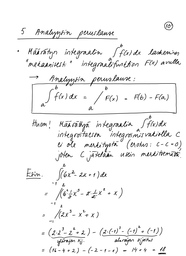 (10)
5 Analyysin peruslause
• Määrätyn integraalin ∫ₐᵇ f(x)dx laskeminen
"mekaanisesti" integraalifunktion F(x) avulla
→ Analyysin peruslause:
∫ₐᵇ f(x)dx = /ₐᵇ F(x) = F(b) - F(a)
Huom! Määrättyä integraalia ∫ₐᵇ f(x)dx
integroitaessa integroimisvakiolla C
ei ole merkitystä (erotus: C-C=0)
joten C jätetään usein merkitsemättä.
Esim. ∫₋₁² (6x² - 2x + 1)dx
= (2x³ - x² + x)
= (2·2³ - 2² + 2) - (2·(-1)³ - (-1)² + (-1))
= (16 - 4 + 2) - (-2 - 1 - 1) = 14 + 4 = 18